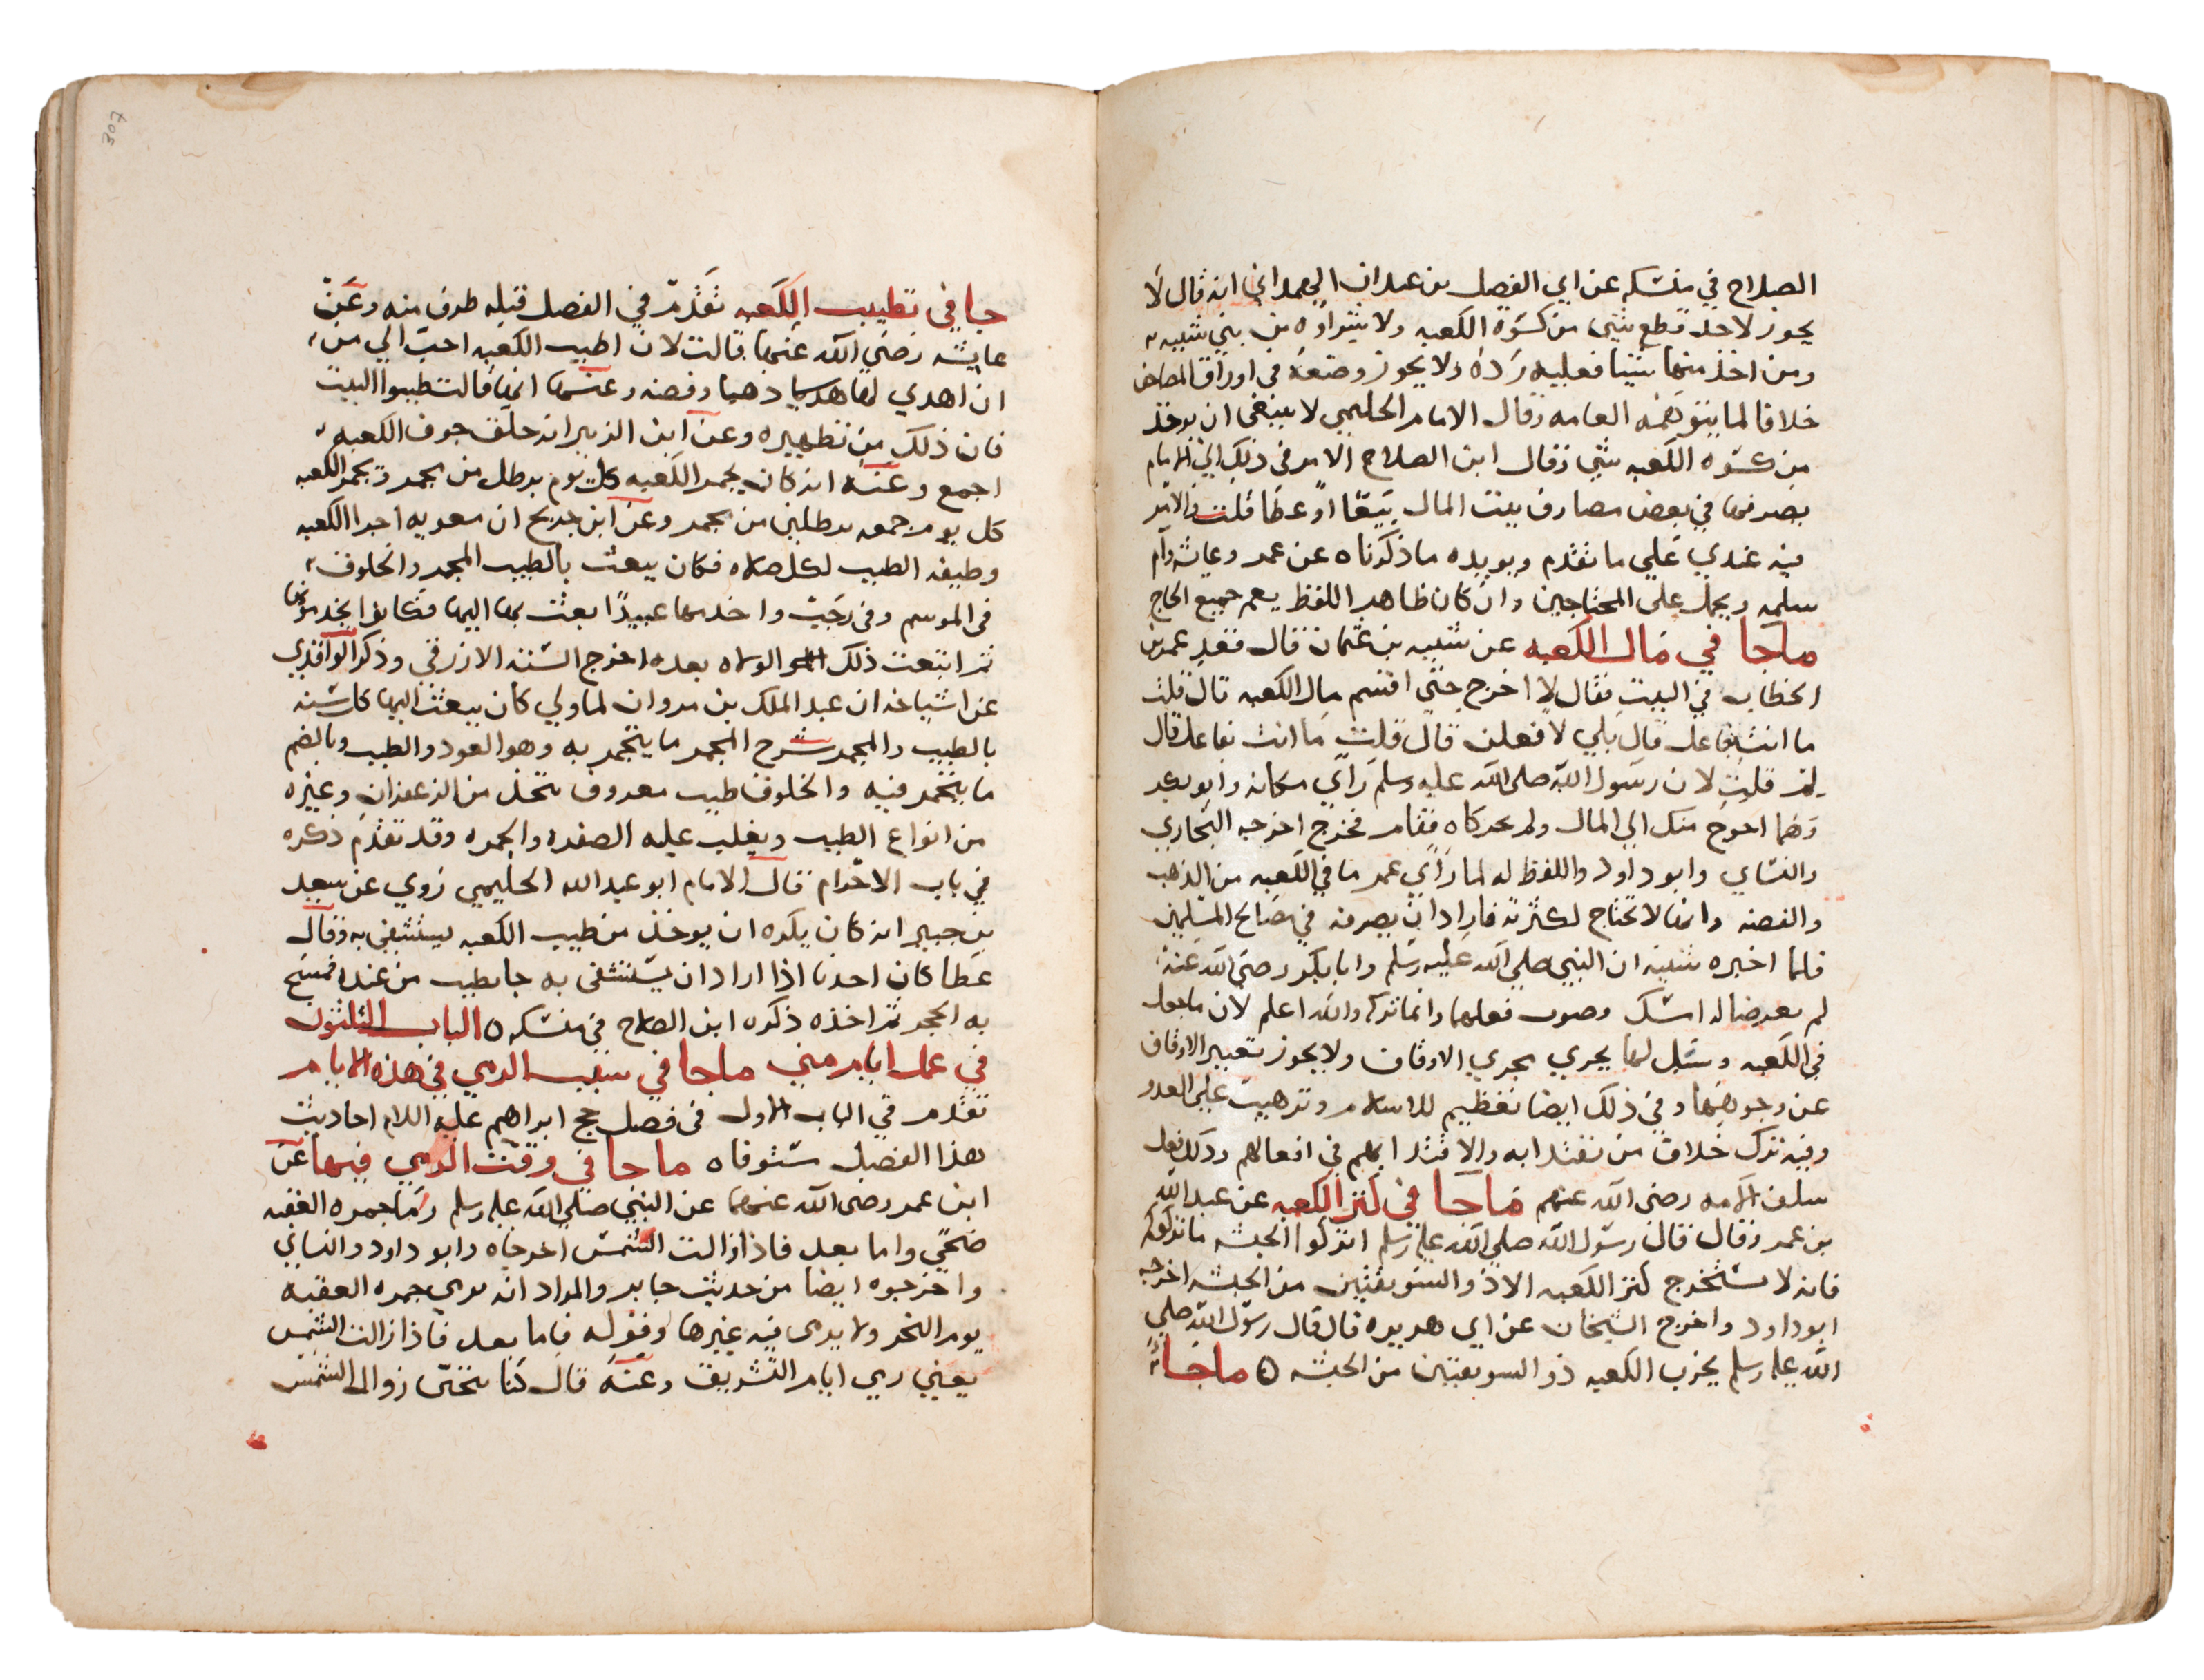 الصلاح في منسكه عن ابي الفضل بن عبدان الهمداني انه قال لا
يجوز لاحد قطع شي من كسوة الكعبه ولا يشراوه من بني شيبه
ومن اخذ منها شيا فعليه رده ولا يجوز وضعه في اوراق المصاحف
خلافا لما يتوهمه العامه وقال الامام الحليمي لا ينبغي ان يوخذ
من كسوه الكعبه شي وقال ابن الصلاح الامر في ذلك الي الامام
يصرفها في بعض مصارف بيت المال بيعا او عطا قلت والامر
فيه عندي علي ما تقدم ويويده ما ذكرناه عن عمر وعايشه وام
سلمه ويحمل على المحتاجين وان كان ظاهر اللفظ يعم جميع الحاج
ماجا في مال الكعبه عن شيبه بن عثمان قال قعد عمر بن
الخطاب في البيت فقال لا اخرج حتى اقسم مال الكعبه قال قلت
ما انت بفاعل قال بلي لافعلن قال قلت ما انت بفاعل قال
لم قلت لان رسول الله صلى الله عليه وسلم راي مكانه وابو بكر
وهما احوج منك الي المال ولم يحركاه فقام فخرج اخرجه البخاري
والنساي وابو داود واللفظ له لما راي عمر ما في الكعبه من الذهب
والفضه وانها لا تحتاج لكثرته فاراد ان يصرفه في مصالح المسلمين
فلما اخبره شيبه ان النبي صلي الله عليه وسلم وابا بكر رضي الله عنه
لم يعرضا له امسك وصوب فعلهما وانما تركه والله اعلم لان ماجعل
في الكعبه وسبل لها يجري مجري الاوقاف ولا يجوز تغيير الاوقاف
عن وجوهها وفي ذلك ايضا تعظيم للاسلام وترهيب علي العدو
وفيه ترك خلاف من يقتدا به والاقتدا بهم في افعالهم وذلك فعل
سلف الامه رضى الله عنهم ماجا في كنز الكعبه عن عبد الله
بن عمر وقال قال رسول الله صلي الله عليه وسلم اتركوا الحبشه ما تركوكم
فانه لا يستخرج كنز الكعبه الا ذو السويقتين من الحبشه اخرجه
ابو داود واخرج الشيخان عن ابي هريره قال قال رسول الله صلي
الله عليه وسلم يخرب الكعبه ذو السويقتين من الحبشه ه ماجا
جا في تطييب الكعبه تقدم في الفصل قبله طرف منه وعن
عايشه رضي الله عنها قالت لان اطيب الكعبه احب الي من
ان اهدي لها هديا ذهبا وفضه وعنها انها قالت طيبوا البيت
فان ذلك من تطهيره وعن ابن الزبير انه خلق جوف الكعبه
اجمع وعنه انه كان يجمر الكعبه كل يوم برطل من مجمر ويجمر الكعبه
كل يوم جمعه برطلين من مجمر وعن ابن جريج ان معويه اجرا للكعبه
وظيفه الطيب لكل صلاه فكان يبعث بالطيب المجمر والخلوق
في الموسم وفي رجب واخدمها عبيدا بعث بها اليها فكانوا يخدمونها
ثم اتبعت ذلك الولاه بعده اخرج السته الازرقي وذكر الواقدي
عن اشياخه ان عبد الملك بن مروان لما ولي كان يبعث اليها كل سنه
بالطيب والمجمر شرح المجمر ما يتجمر به وهو العود والطيب وبالضم
ما يتجمر فيه والخلوق طيب معروف يتخذ من الزعفران وغيره
من انواع الطيب ويغلب عليه الصفره والحمره وقد تقدم ذكره
في باب الاحرام قال الامام ابو عبد الله الحليمي روي عن سعيد
بن جبير انه كان يكره ان يوخذ من طيب الكعبه يستشفى به وقال
عطا كان احدنا اذا اراد ان يستشفى به جا بطيب من عنده فمسح
به الحجر ثم اخذه ذكره ابن الصلاح في منسكه ه الباب الثلثون
في عمل ايام مني ماجا في سبب الرمي في هذه الايام
تقدم في الباب الاول في فصل حج ابراهيم عليه السلام احاديث
هذا الفصل مستوفاه ماجا في وقت الرمي فيها عن
ابن عمر رضى الله عنهما عن النبي صلي الله عليه وسلم رما جمره العقبه
ضحي واما بعد فاذا زالت الشمس اخرجاه وابو داود والنساي
واخرجوه ايضا من حديث جابر والمراد انه يرمي جمره العقبه
يوم النحر ولا يرمى فيه غيرها وقوله فاما بعد فاذا زالت الشمس
يعني رمي ايام التشريق وعنه قال كنا نتحين زوال الشمس
307